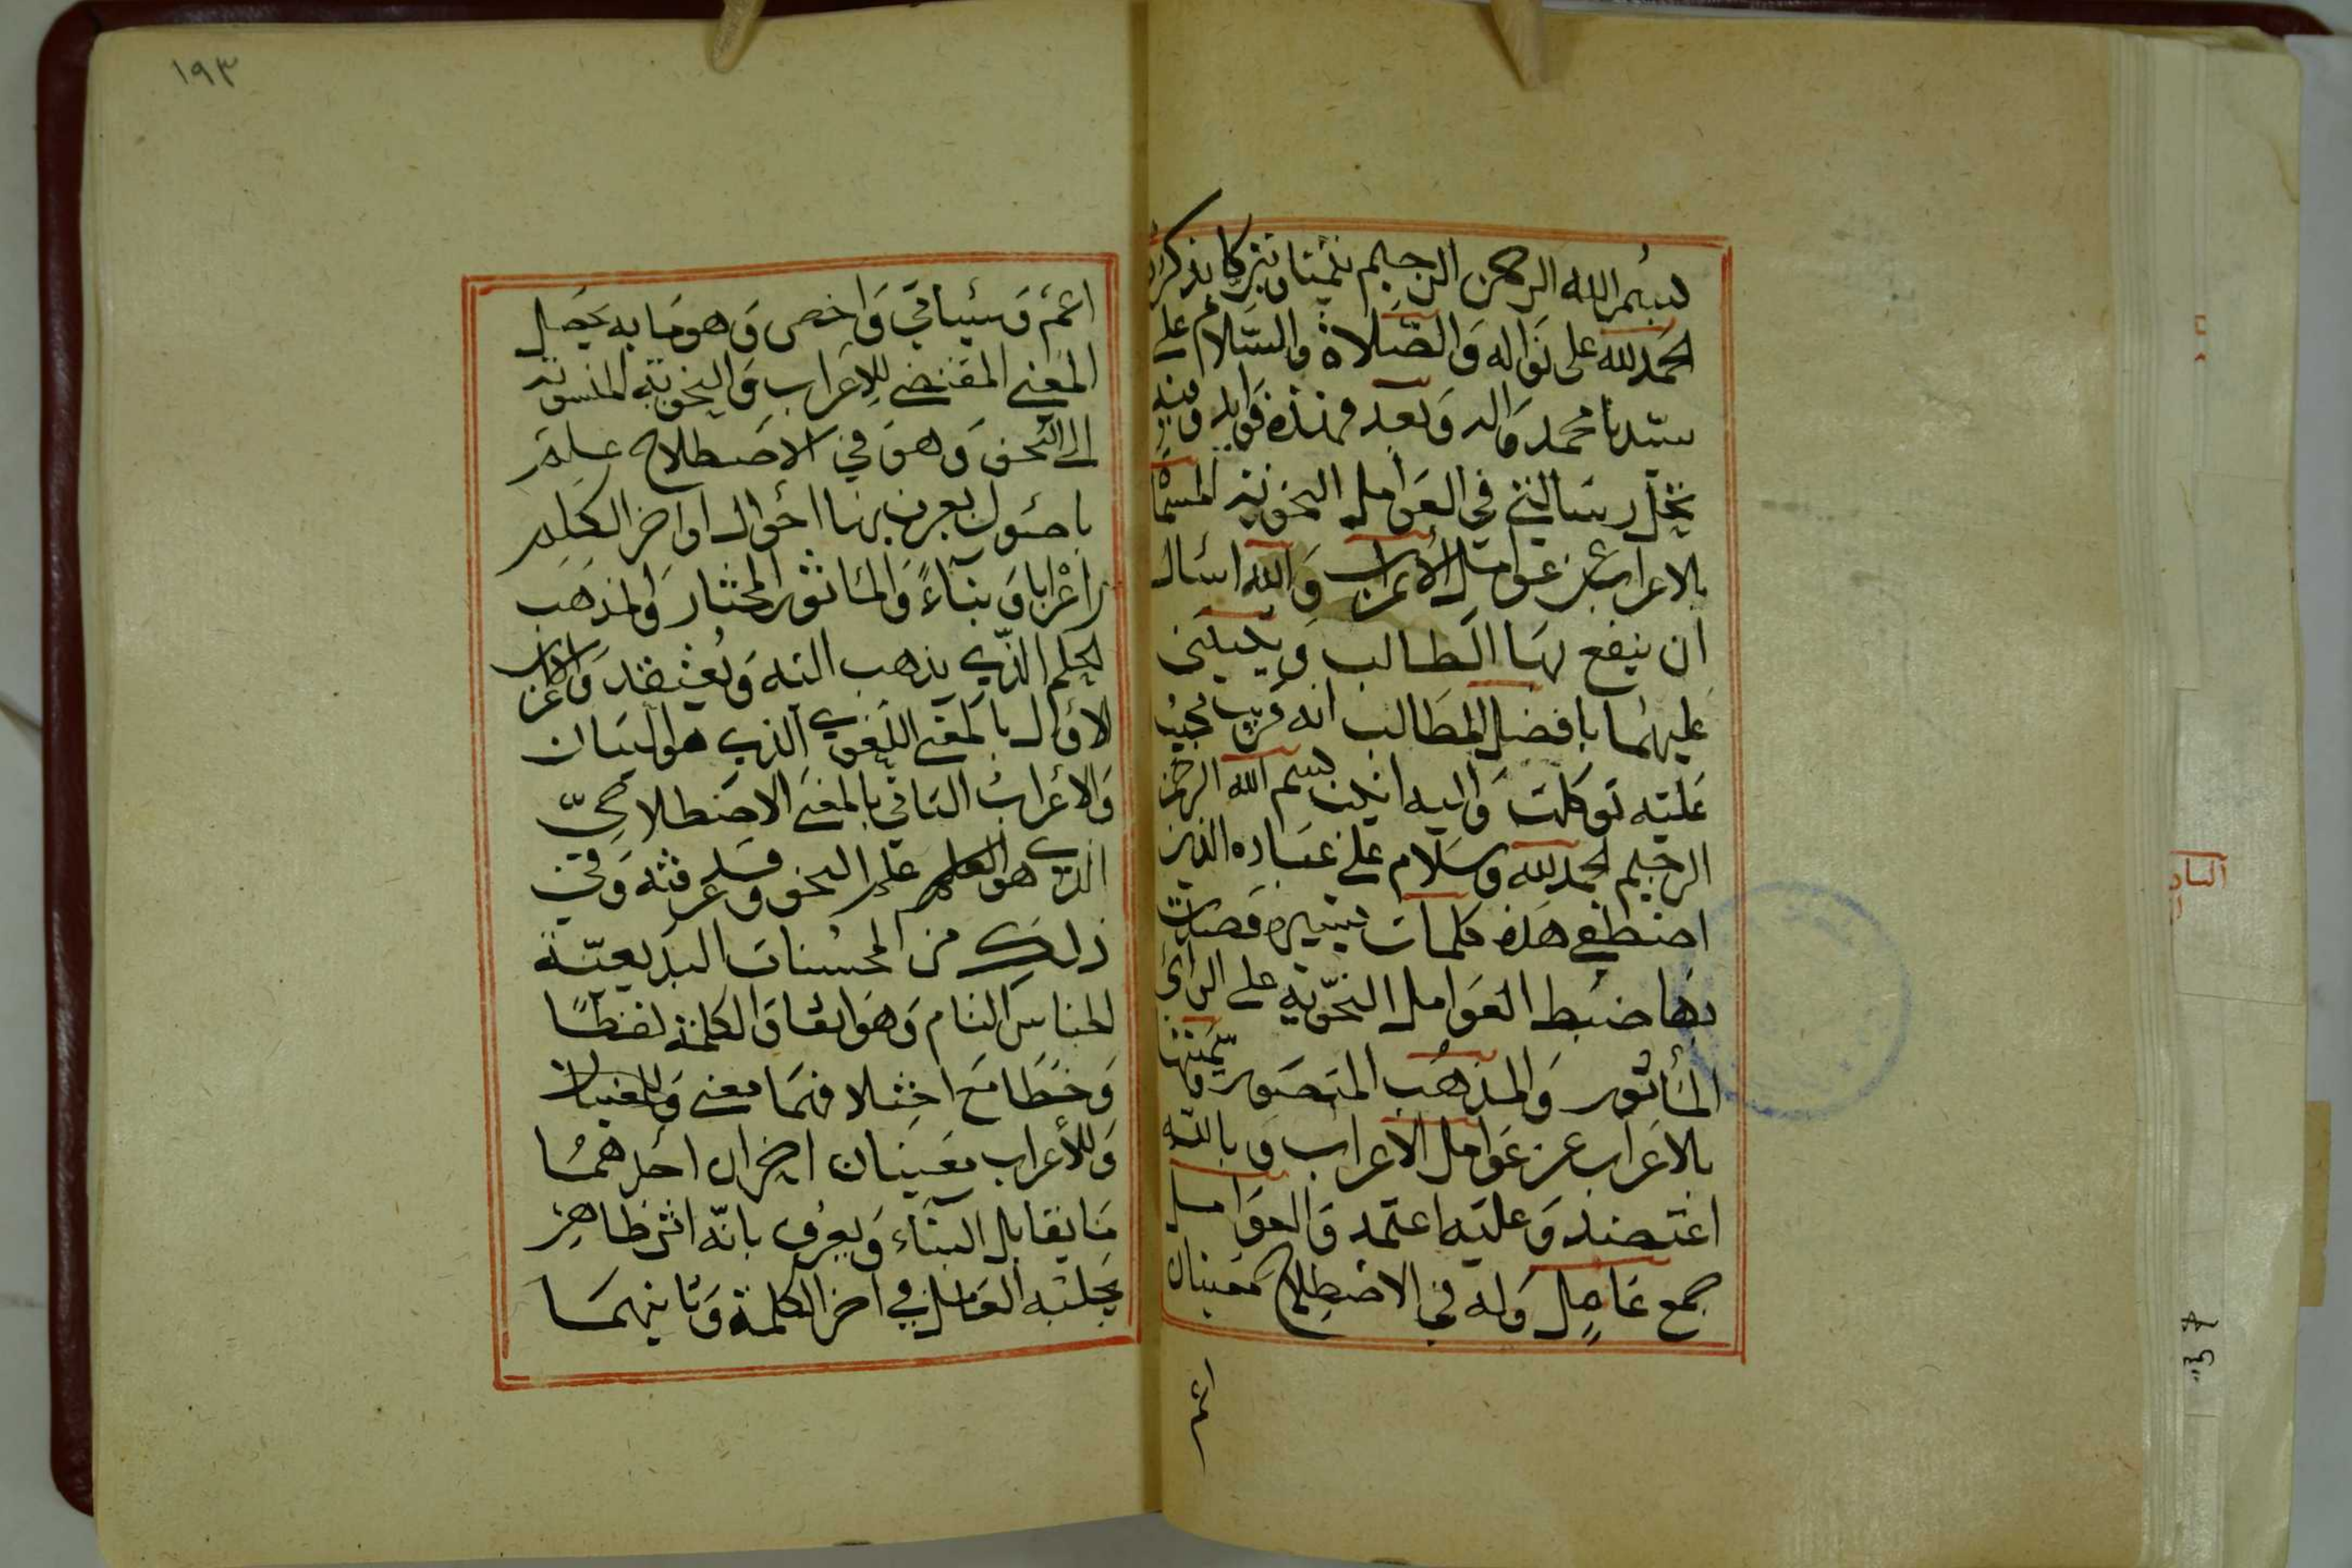 بسم الله الرحمن الرحيم تيمنا وتبركا بذكره
الحمد لله على نواله والصلاة والسلام على
سيدنا محمد واله وبعد فهذه فوايد وفيه
تحل رسالتي في العوامل النحوية المسماة
بالاعراب عن عوامل الأعراب والله اسئال
ان ينفع بها الطالب ويثيبني
عليهما بافضل المطالب انه قريب مجيب
عليه توكلت واليه انيب بسم الله الرحمن
الرحيم الحمد لله وسلام على عباده الذين
اصطفى هذه كلمات يسيره قصدت
بها ضبط العوامل النحوية على الرأي
المأثور والمذهب المنصور وسميتها
بالاعراب عن عوامل الاعراب وبالله
اعتضد وعليه اعتمد والعوامل
جمع عامل وله في الاصطلاح معنيان
اعم
١٩٣
اعم وسياتي واخص وهو ما به يحصل
المعنى المقتضي للإعراب والنحوية المنسوبة
الى النحو وهو في الاصطلاح علم
باصول يعرف بها احوال اواخر الكلم
إعرابا وبناءً والماثور المختار والمذهب
الحكم الذي يذهب اليه ويعتقد والاعراب
الاول بالمعنى اللغوي الذي هو البيان
والأعراب الثاني بالمعنى الاصطلاحيّ
الذي هو العلم علم النحو وقد عرفته وفي
ذلك من المحسنات البديعيّة
الجناس التام وهو اتفاق الكلمة لفظًا
وخطا مع اختلافهما معنى
وللأعراب معنيان اخران احدهما
ما يقابل البناء ويعرف بانّه اثر ظاهر
يجلبه العامل في اخر الكلمة وثانيهما
الساد